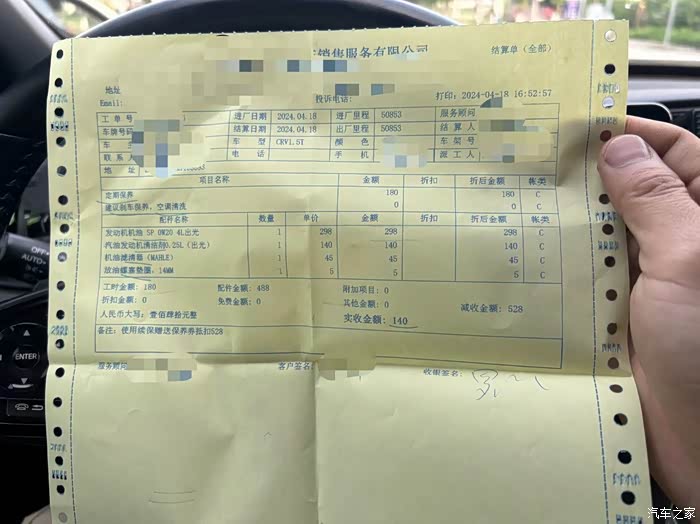 销售服务有限公司 结算单（全部）
地址
投诉电话： 打印：2024-04-18 16:52:57
Email:
工单号 进厂日期 2024.04.18 进厂里程 50853 服务顾问
车牌号码 结算日期 2024.04.18 出厂里程 50853 结算人
车 车型 CRV1.5T 颜色 车架号
联系人 电话 手机 派工人
地址
项目名称 金额 折扣 折后金额 帐类
定期保养 180 180 C
建议刹车保养，空调清洗 0 0 C
配件名称 数量 单价 金额 折扣 折后金额 帐类
发动机机油 SP 0W20 4L出光 1 298 298 298 C
汽油发动机清洁剂0.25L（出光） 1 140 140 140 C
机油滤清器（MAHLE） 1 45 45 45 C
放油螺塞垫圈，14MM 1 5 5 5 C
工时金额：180 配件金额：488 附加项目：0
折扣金额：0 免费金额：0 其他金额：0 减收金额：528
人民币大写：壹佰肆拾元整 实收金额：140
备注：使用续保赠送保养券抵扣528
服务顾问 客户签名： 收银签名：
ENTER
OFF
AUTO
汽车之家